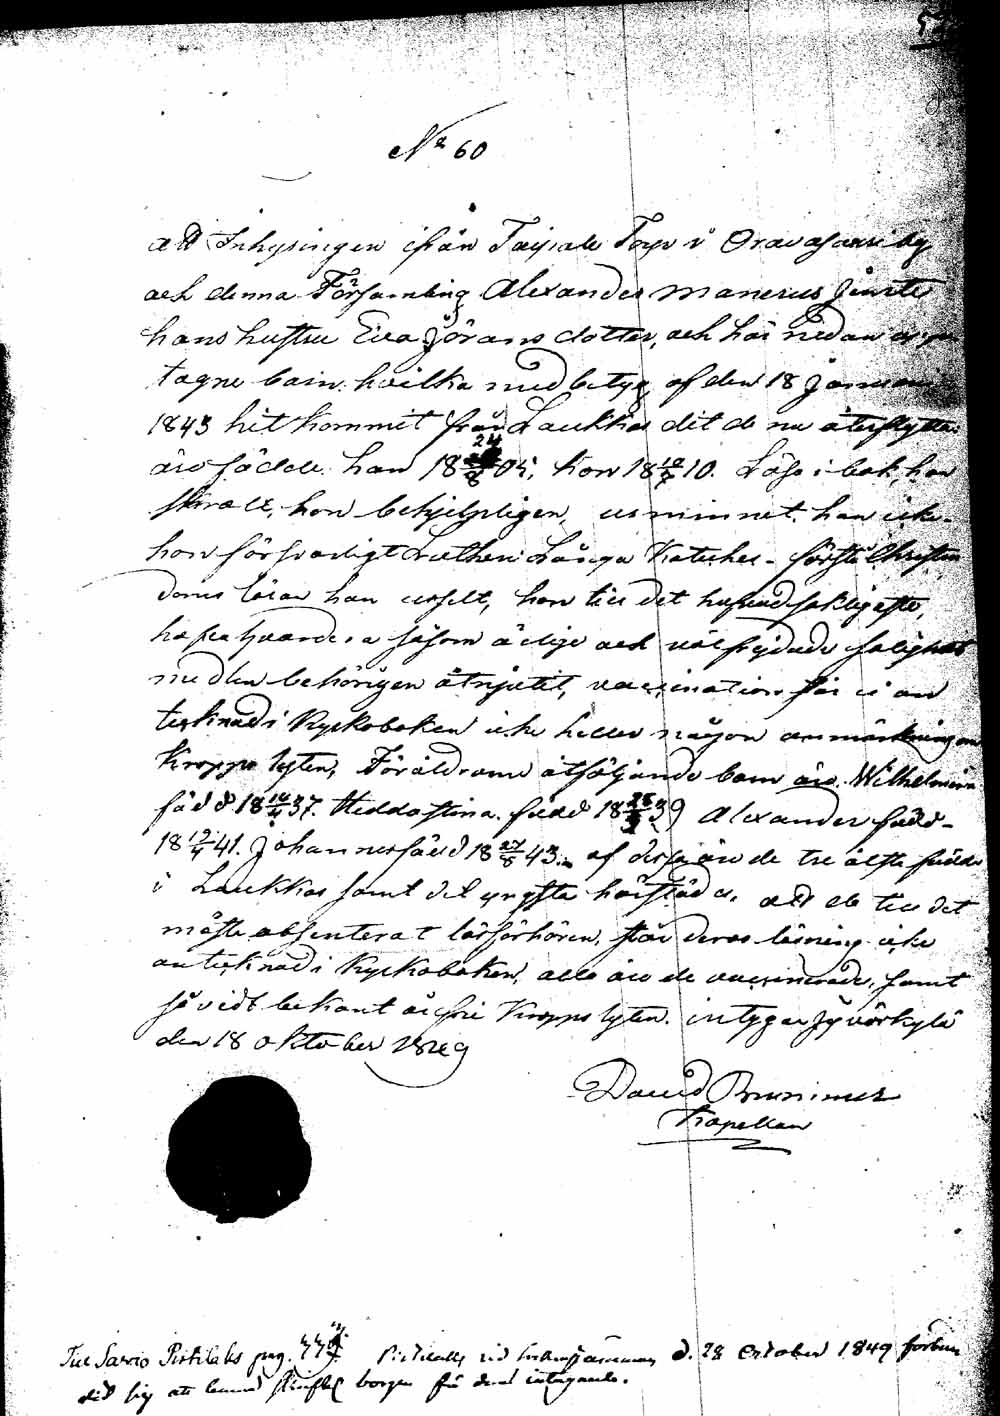 No 60
att Inhysingen ifrån Taipale Torp i Oravasaari by
och denna Församling Alexander Manerus jämte
hans hustru Eva Jörans dotter, och här nedan
tagne barn hvilka med betyg af den 18 Januari
1843 hit kommit från Laukkas dit de nu återflytta
äro födde, han 18 24/8 05, hon 18 10/7 10. Läsa i bok, han
svagt, hon behjelpligen, ur minnet han icke
hon försvarligt Lutheri Långa Kateches - förstå Christen
doms läran han uselt, hon till det hufvudsakligaste,
hafva hvardera såsom ärlige och välfrejdade salighets
medlen behörigen åtnjutit, vaccination står ei an
tecknad i Kyrkoboken icke heller någon anmärkning om
Kropps lyten, Föräldrarne åtföljande barn äro. Wilhelmina
född d 18 14/4 37. Hedda Stina född 18 39 Alexander född
18 12/4 41. Johannes född 18 27/8 43. af dessa äro de tre äldste födde
i Laukkas samt det yngsta härstädes. att de till det
mesta absenterat läsförhören, står deras läsning icke
antecknad i Kyrkoboken, alla äro de vaccinerade, samt
så vidt bekant är fri Kropps lyten. intygar Jyväskylä
den 18 oktober 1849
David Bruninus
Kapellan
Till Sarvio Pirtilaks pag. d. 28 October 1849 förbun
did sig att lemna borgen för deras intagande.